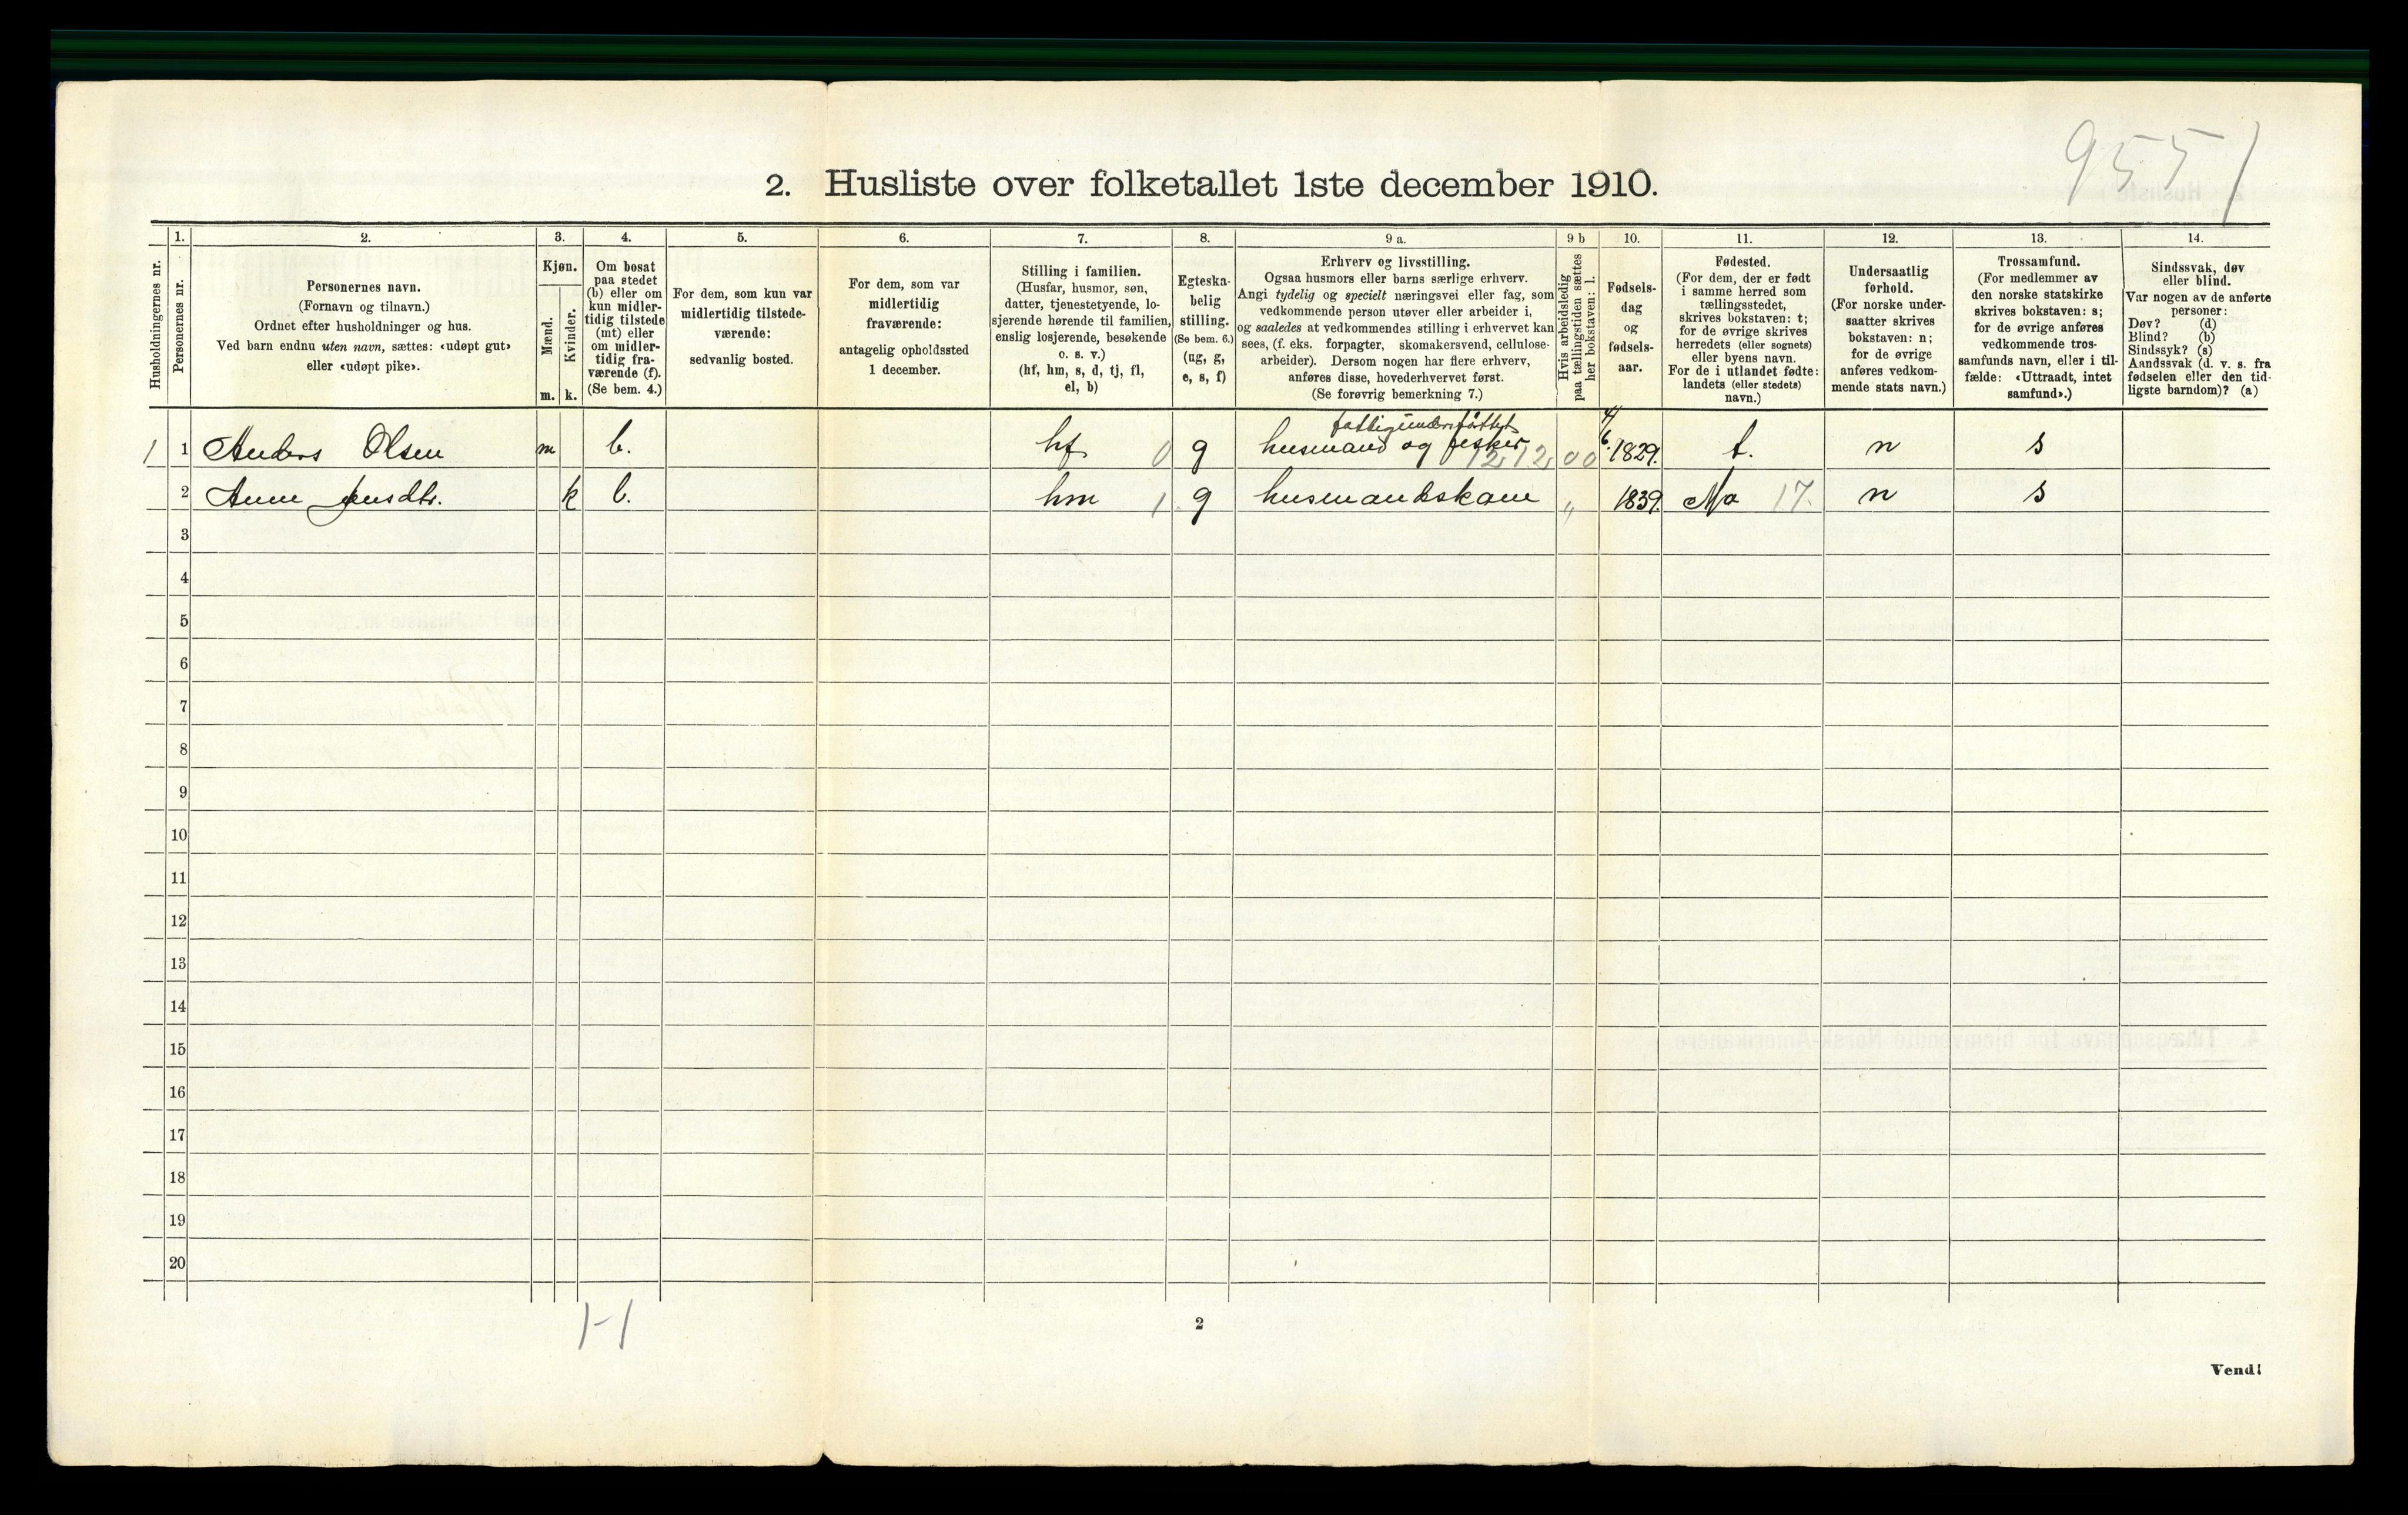 9551
2. Husliste over folketallet 1ste december 1910.
Husholdningernes nr.
1.
Personernes nr.
2.
Personernes navn.
(Fornavn og tilnavn.)
Ordnet efter husholdninger og hus.
Ved barn endnu uten navn, sættes: «udøpt gut»
eller «udøpt pike».
3.
Kjøn.
Mænd.
Kvinder.
m. k.
4.
Om bosat
paa stedet
(b) eller om
kun midler-
tidig tilstede
(mt) eller
om midler-
tidig fra-
værende (f).
(Se bem. 4.)
5.
For dem, som kun var
midlertidig tilstede-
værende:
sedvanlig bosted.
6.
For dem, som var
midlertidig
fraværende:
antagelig opholdssted
1 december.
7.
Stilling i familien.
(Husfar, husmor, søn,
datter, tjenestetyende, lo-
sjerende hørende til familien,
enslig losjerende, besøkende
o. s. v.)
(hf, hm, s, d, tj, fl,
el, b)
8.
Egteska-
belig
stilling.
(Se bem. 6.)
(ug, g,
e, s, f)
9 a.
Erhverv og livsstilling.
Ogsaa husmors eller barns særlige erhverv.
Angi tydelig og specielt næringsvei eller fag, som
vedkommende person utøver eller arbeider i,
og saaledes at vedkommendes stilling i erhvervet kan
sees, (f. eks. forpagter, skomakersvend, cellulose-
arbeider). Dersom nogen har flere erhverv,
anføres disse, hovederhvervet først.
(Se forøvrig bemerkning 7.)
9 b
Hvis arbeidsledig
paa tællingstiden sættes
her bokstaven: l.
10.
Fødsels-
dag
og
fødsels-
aar.
11.
Fødested.
(For dem, der er født
i samme herred som
tællingsstedet,
skrives bokstaven: t;
for de øvrige skrives
herredets (eller sognets)
eller byens navn.
For de i utlandet fødte:
landets (eller stedets)
navn.)
12.
Undersaatlig
forhold.
(For norske under-
saatter skrives
bokstaven: n;
for de øvrige
anføres vedkom-
mende stats navn.)
13.
Trossamfund.
(For medlemmer av
den norske statskirke
skrives bokstaven: s;
for de øvrige anføres
vedkommende tros-
samfunds navn, eller i til-
fælde: «Uttraadt, intet
samfund».)
14.
Sindssvak, døv
eller blind.
Var nogen av de anførte
personer:
Døv? (d)
Blind? (b)
Sindssyk? (s)
Aandssvak (d. v. s. fra
fødselen eller den tid-
ligste barndom)? (a)
fattigunderstøttet
1 1 Anders Olsen m b. hf 0 g husmand og fisker 12 12 00 4/6 1829. t. n s
2 Anne Jensdtr. k b. hm 1 g husmandskone " 1839. 17. n s
3
4
5
6
7
8
9
10
11
12
13
14
15
16
17
18
19
20
1-1
2
Vend!